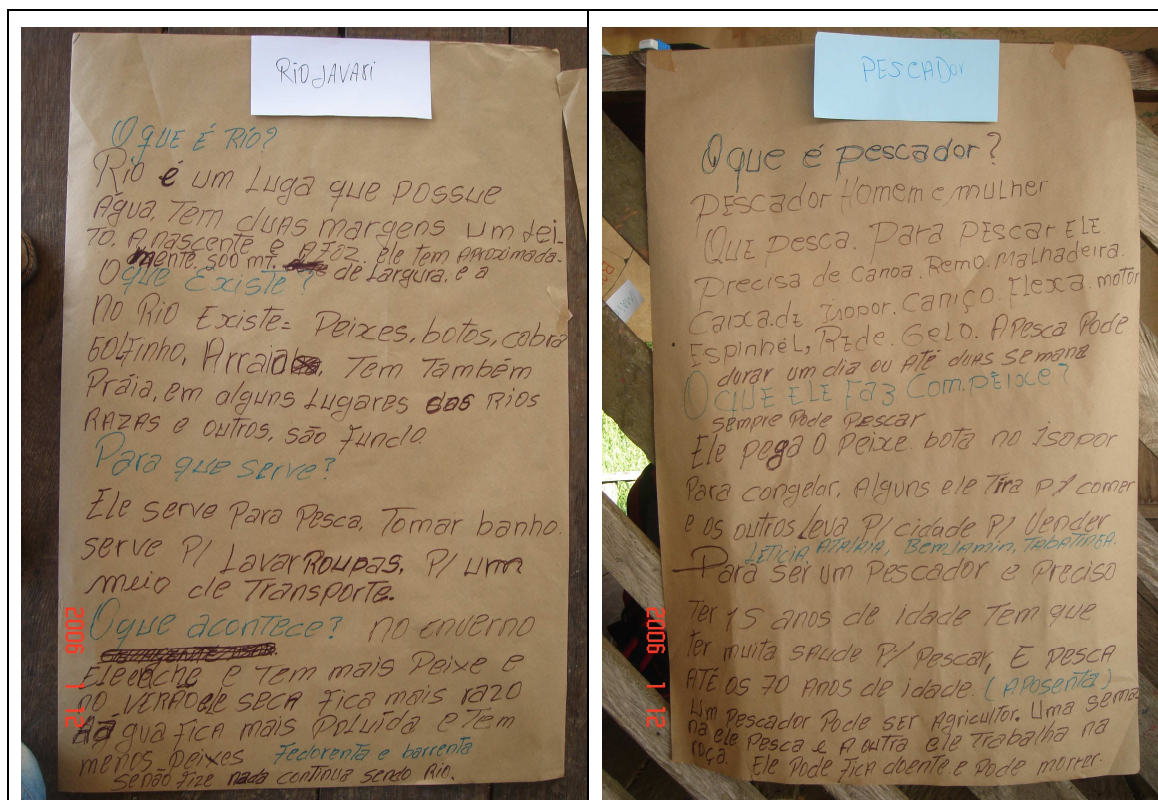 RIO JAVARI
O que é Rio?
Rio é um Luga que possue
Água. Tem duas margens um Lei-
to. A nascente e A FOZ. ele tem Aproximada-
mente. 500 mt. de Largura. e a
O que Existe?
no Rio Existe= Peixes, botos, cobra
GOLfinho, Arraia. Tem Também
Práia, em alguns Lugares dos Rios
RAZAS e outros, são fundo.
Para que serve?
Ele serve Para Pesca. Tomar banho.
serve P/ Lavar ROUPAS. P/ um
meio de Transporte.
O que acontece? no enverno
Ele enche e Tem mais Peixe e
no VERÃO ele SECA fica mais razo
A água fica mais Poluída e Tem
menos peixes fedorenta e barrenta
Senão fize nada continua sendo Rio.
2006 1 12
PESCADOr
O que é pescador?
PESCADOR Homem e mulher
QUE PESCA. PARA PESCAR ELE
Precisa de canoa. Remo. Malhadeira.
Caixa.de Isopor. Caniço. Flexa. motor
Espinhél, Rede. Gelo. A PESCA Pode
durar um dia ou Até duas semana
O QUE ELE Faz Com.PEIXE?
sempre Pode Pescar
Ele pega O peixe. bota no isopor
Para congelar. Alguns ele Tira p/ comer
e os outros Leva P/ cidade P/ Vender
LETICIA, ATALAIA, Bemjamin, TABATINGA.
Para ser um Pescador e Preciso
Ter 15 anos de idade Tem que
ter muita saude P/ Pescar, E PESCA
ATÉ os 70 Anos de idade. (APOSENTA)
Um Pescador Pode SER Agricultor. Uma sema-
na ele Pesca e A outra ele Trabalha na
roça. Ele Pode fica doente. e Pode morrer.
2006 1 12